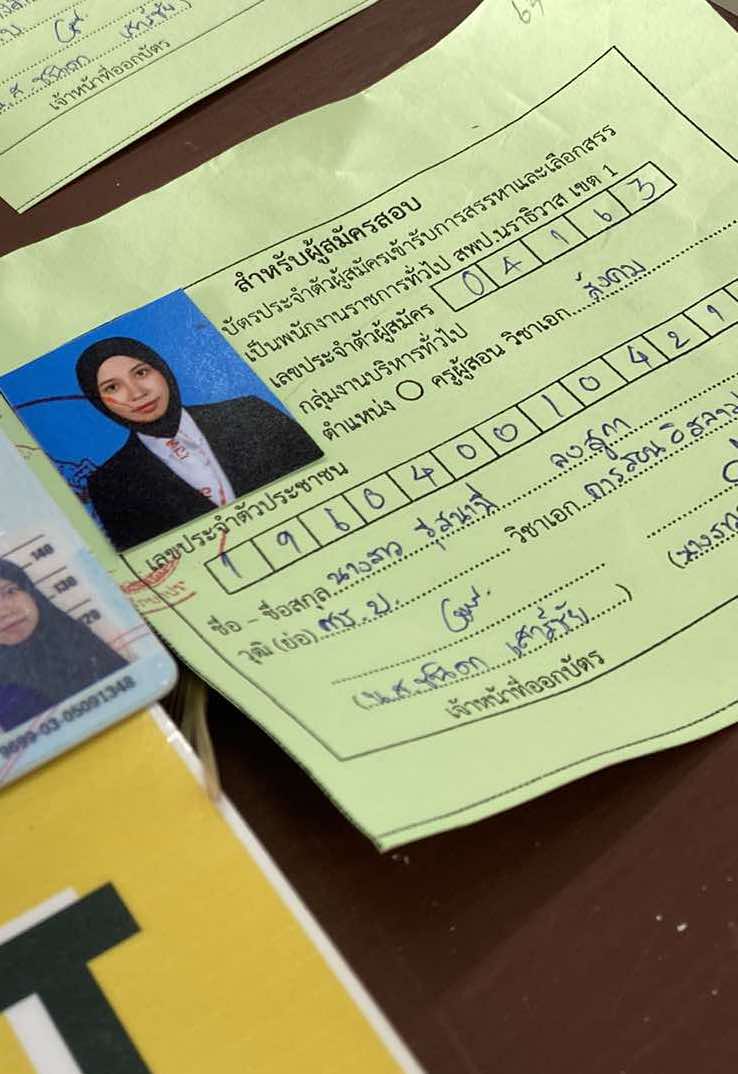 เจ้าหน้าที่ออกบัตร
สำหรับผู้สมัครสอบ
บัตรประจำตัวผู้สมัครเข้ารับการสรรหาและเลือกสรร
เป็นพนักงานราชการทั่วไป สพป.นราธิวาส เขต 1
เลขประจำตัวผู้สมัคร 04163
กลุ่มงานบริหารทั่วไป
ตำแหน่ง ครูผู้สอน วิชาเอก สังคม
เลขประจำตัวประชาชน
196040010421
ชื่อ – ชื่อสกุล นางสาว
วุฒิ (ย่อ) ศษ.บ. วิชาเอก การสอนอิสลาม
(น.ส. )
เจ้าหน้าที่ออกบัตร
140
130
9699-03-05091348
T